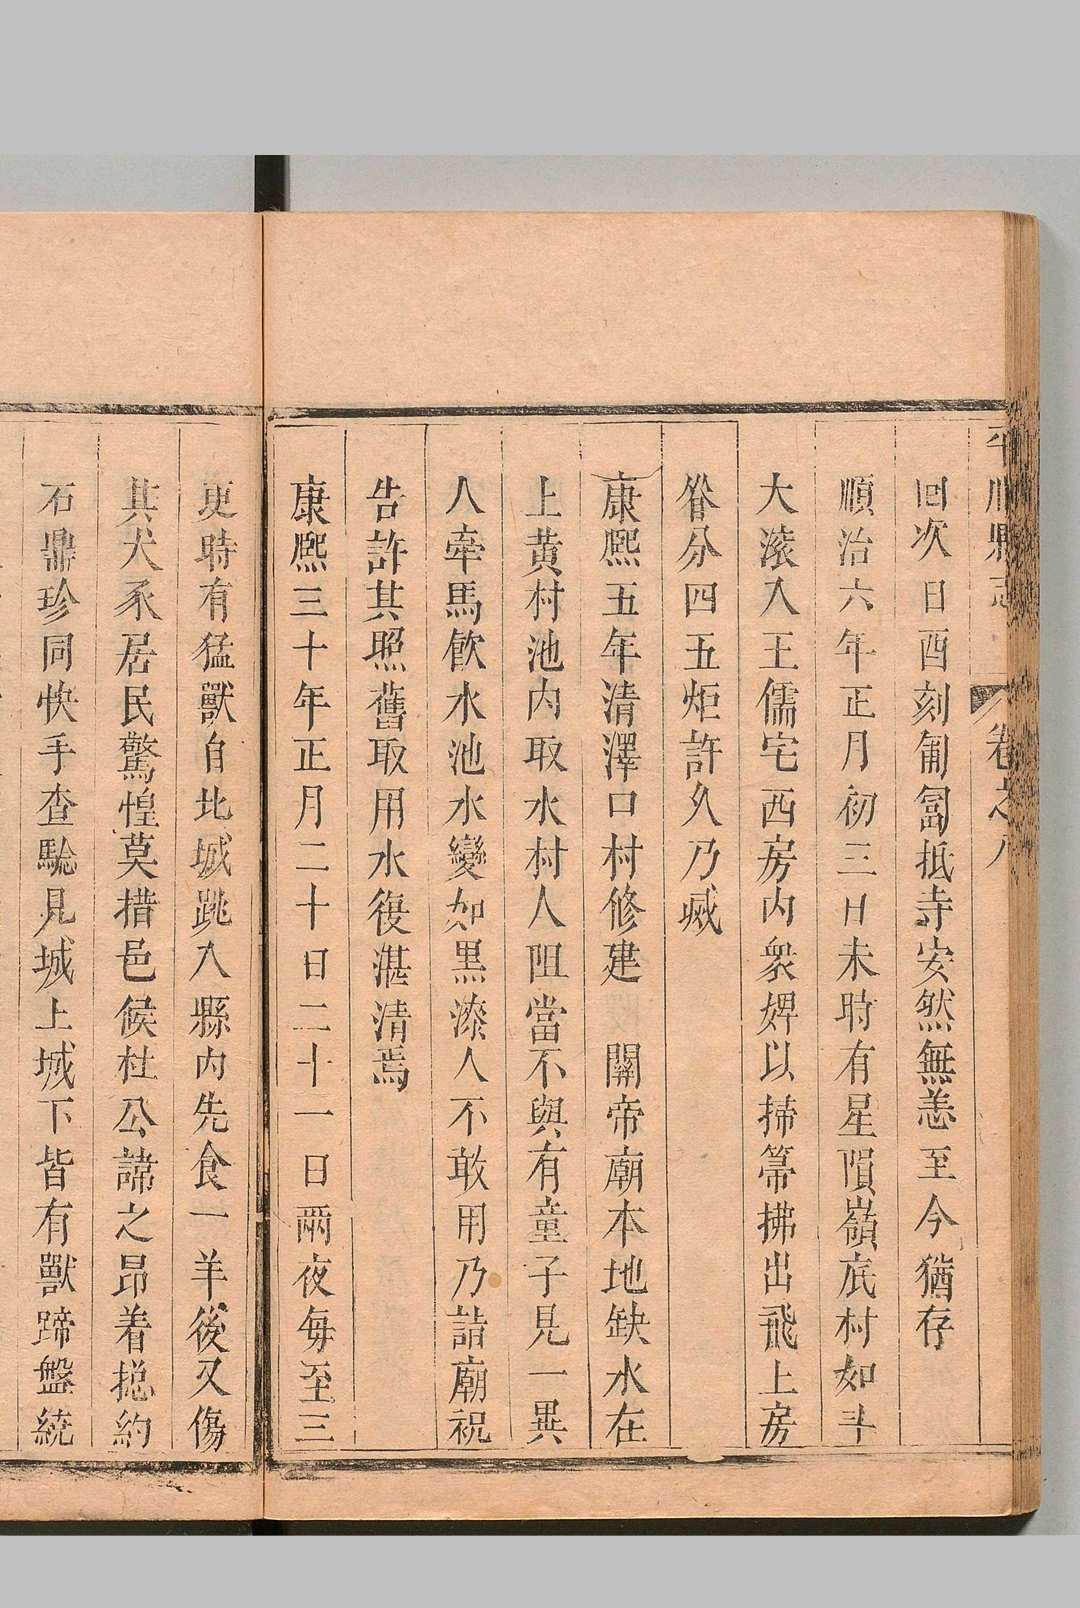 平順縣志 卷之八
回次日酉刻匍匐抵寺安然無恙至今猶存
順治六年正月初三日未時有星隕嶺底村如斗
大滚入王儒宅西房内衆婢以掃箒拂出飛上房
脊分四五炬許久乃滅
康熙五年清澤口村修建 關帝廟本地缺水在
上黄村池内取水村人阻當不與有童子見一異
人牽馬飲水池水變如黒漆人不敢用乃詣廟祝
告許其照舊取用水復湛清焉
康熙三十年正月二十日二十一日兩夜每至三
更時有猛獸自北城跳入縣内先食一羊後又傷
其犬豕居民驚惶莫措邑侯杜公諱之昂着摠約
石鼎珍同快手查騐見城上城下皆有獸蹄盤統